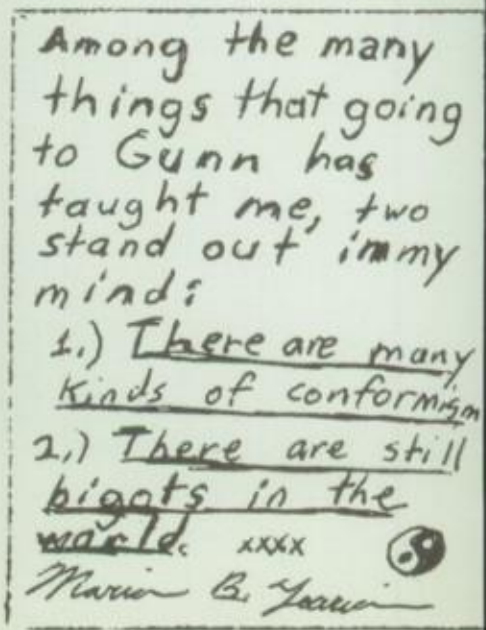 Among the many
things that going
to Gunn has
taught me, two
stand out immy
mind:
1.) There are many
kinds of conformism
2.) There are still
bigots in the
world. xxxx
B.